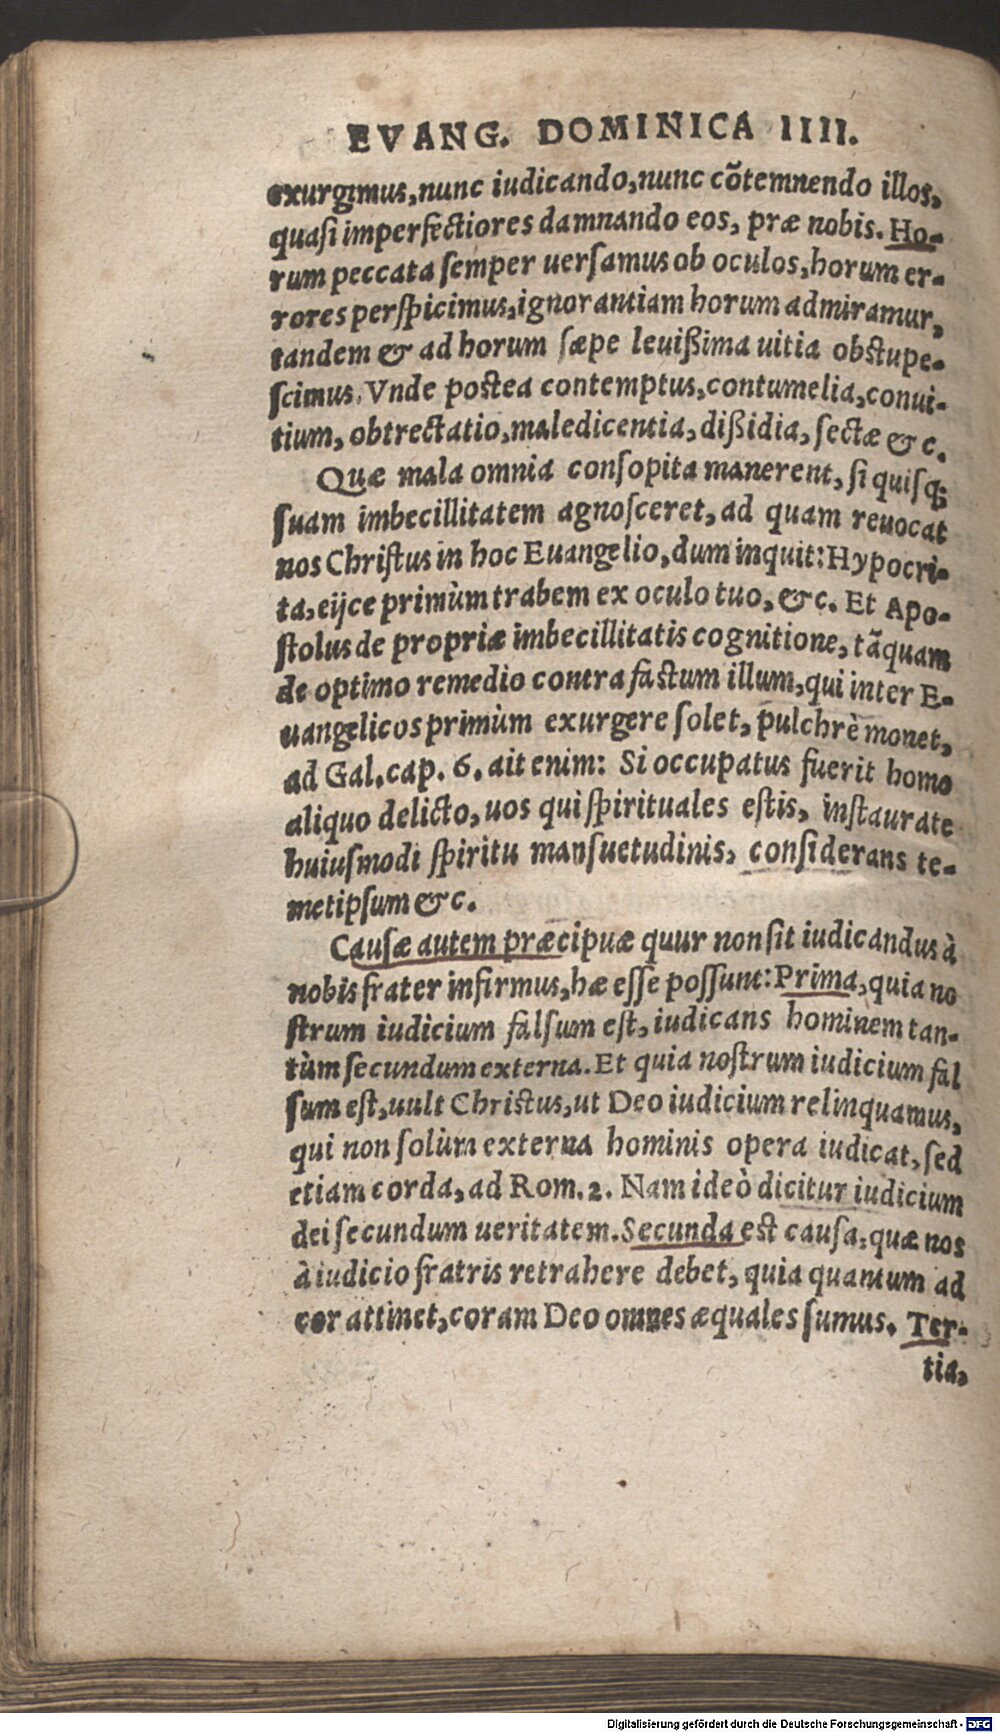 EVANG. DOMINICA IIII.
exurgimus, nunc iudicando, nunc cõtemnendo illos,
quasi imperfectiores damnando eos, præ nobis. Ho-
rum peccata semper uersamus ob oculos, horum er-
rores perspicimus, ignorantiam horum admiramur,
tandem & ad horum sæpe leuißima uitia obstupe-
scimus. Vnde postea contemptus, contumelia, conui-
tium, obtrectatio, maledicentia, dißidia, sectæ &c.
Quæ mala omnia consopita manerent, si quisq;
suam imbecillitatem agnosceret, ad quam reuocat
nos Christus in hoc Euangelio, dum inquit: Hypocri-
ta, eijce primùm trabem ex oculo tuo, &c. Et Apo-
stolus de propriæ imbecillitatis cognitione, tãquam
de optimo remedio contra fastum illum, qui inter E-
uangelicos primùm exurgere solet, pulchrè monet,
ad Gal. cap. 6. ait enim: Si occupatus fuerit homo
aliquo delicto, uos qui spirituales estis, instaurate
huiusmodi spiritu mansuetudinis, considerans te-
metipsum &c.
Causæ autem præcipuæ quur non sit iudicandus à
nobis frater infirmus, hæ esse possunt: Prima, quia no
strum iudicium falsum est, iudicans hominem tan-
tùm secundum externa. Et quia nostrum iudicium fal
sum est, uult Christus, ut Deo iudicium relinquamus,
qui non solùm externa hominis opera iudicat, sed
etiam corda, ad Rom. 2. Nam ideò dicitur iudicium
dei secundum ueritatem. Secunda est causa, quæ nos
à iudicio fratris retrahere debet, quia quantum ad
cor attinet, coram Deo omnes æquales sumus. Ter-
tia,
Digitalisierung gefördert durch die Deutsche Forschungsgemeinschaft - DFG